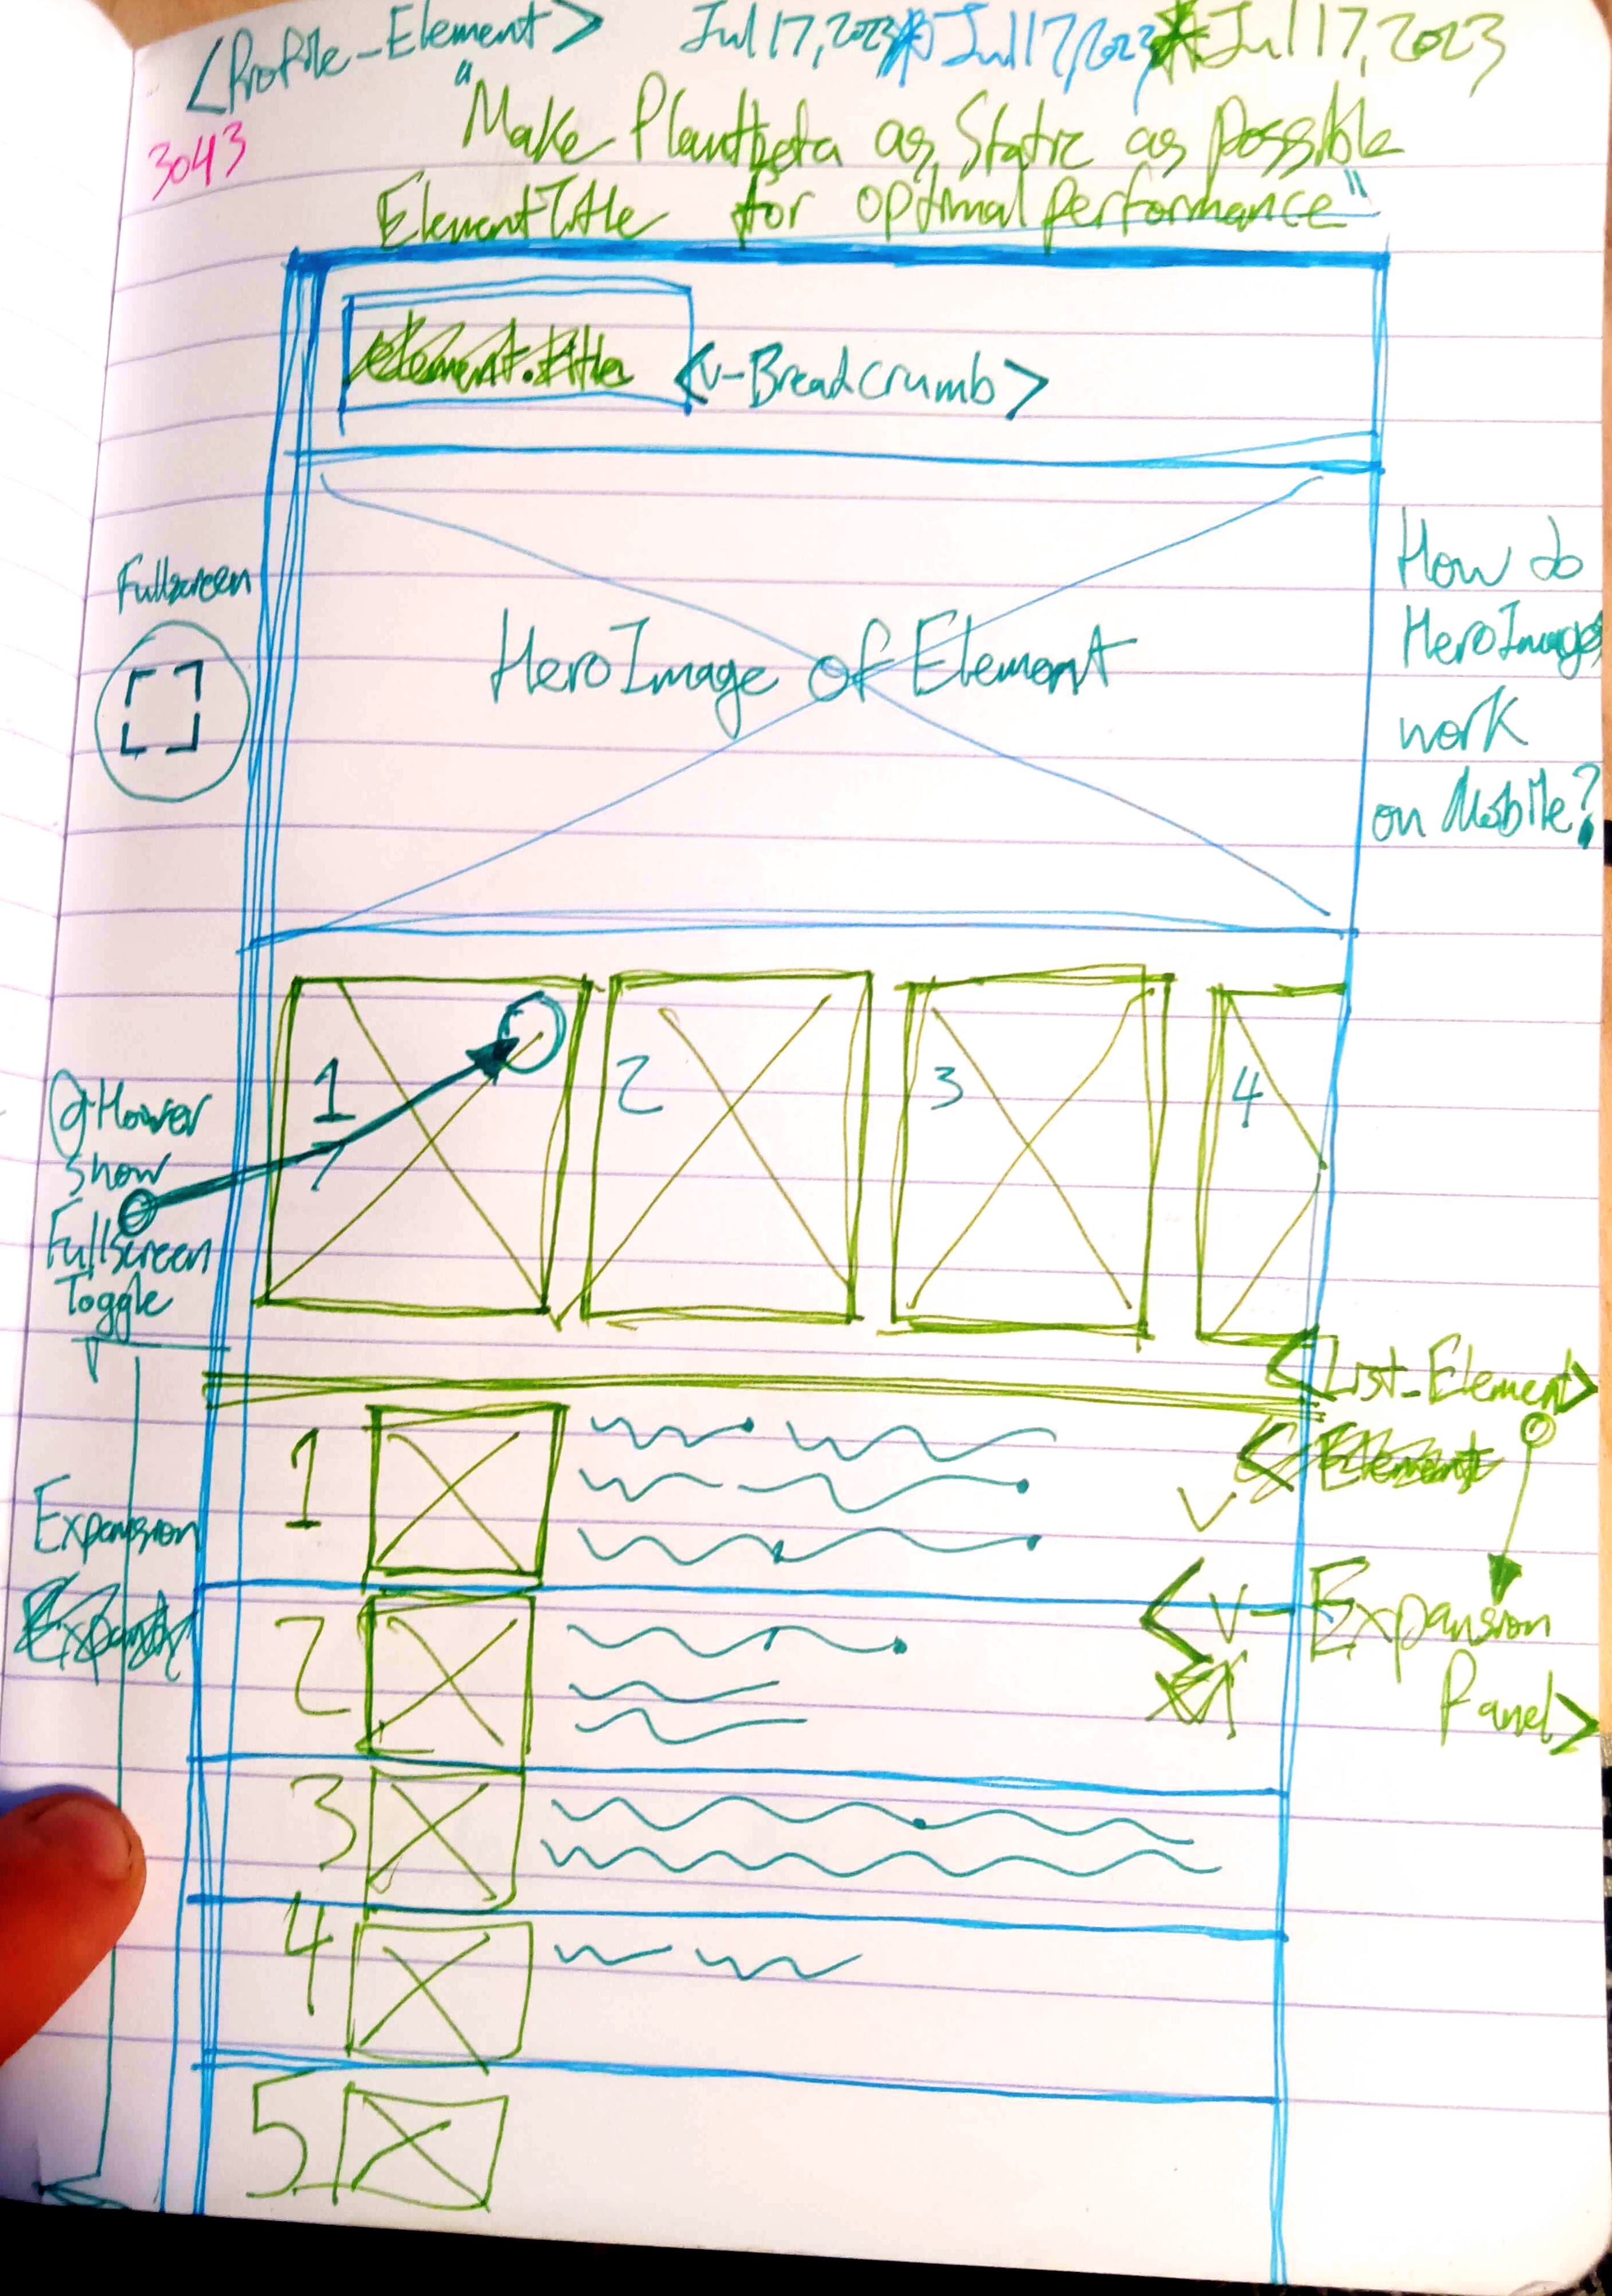 <Profile-Element> Jul 17, 2023 * Jul 17, 2023 * Jul 17, 2023
3043
"Make Plantbeta as Static as possible
ElementTitle for optimal performance"
element.title <v-Breadcrumb>
Fullscreen
HeroImage of Element
How do
HeroImages
work
on Mobile?
1 2 3 4
@Hover
show
Fullscreen
Toggle
<List-Element>
<Element
1
Expansion
<v-Expansion
Panel>
2
3
4
5